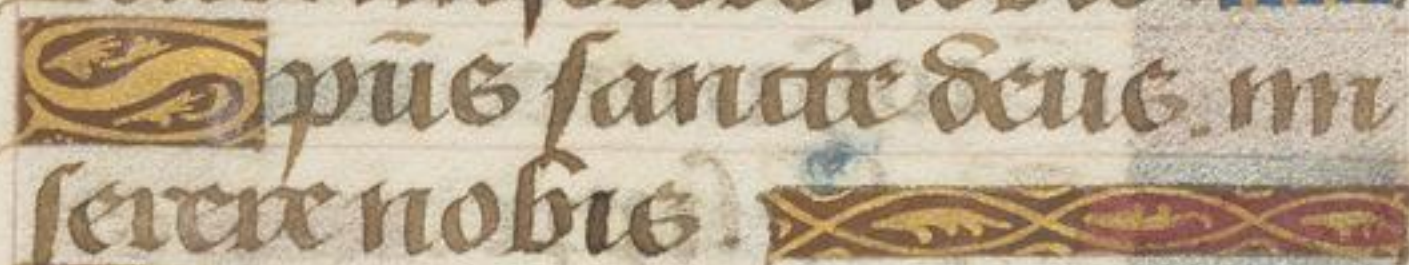 Spūs sancte deus. mi
serere nobis.